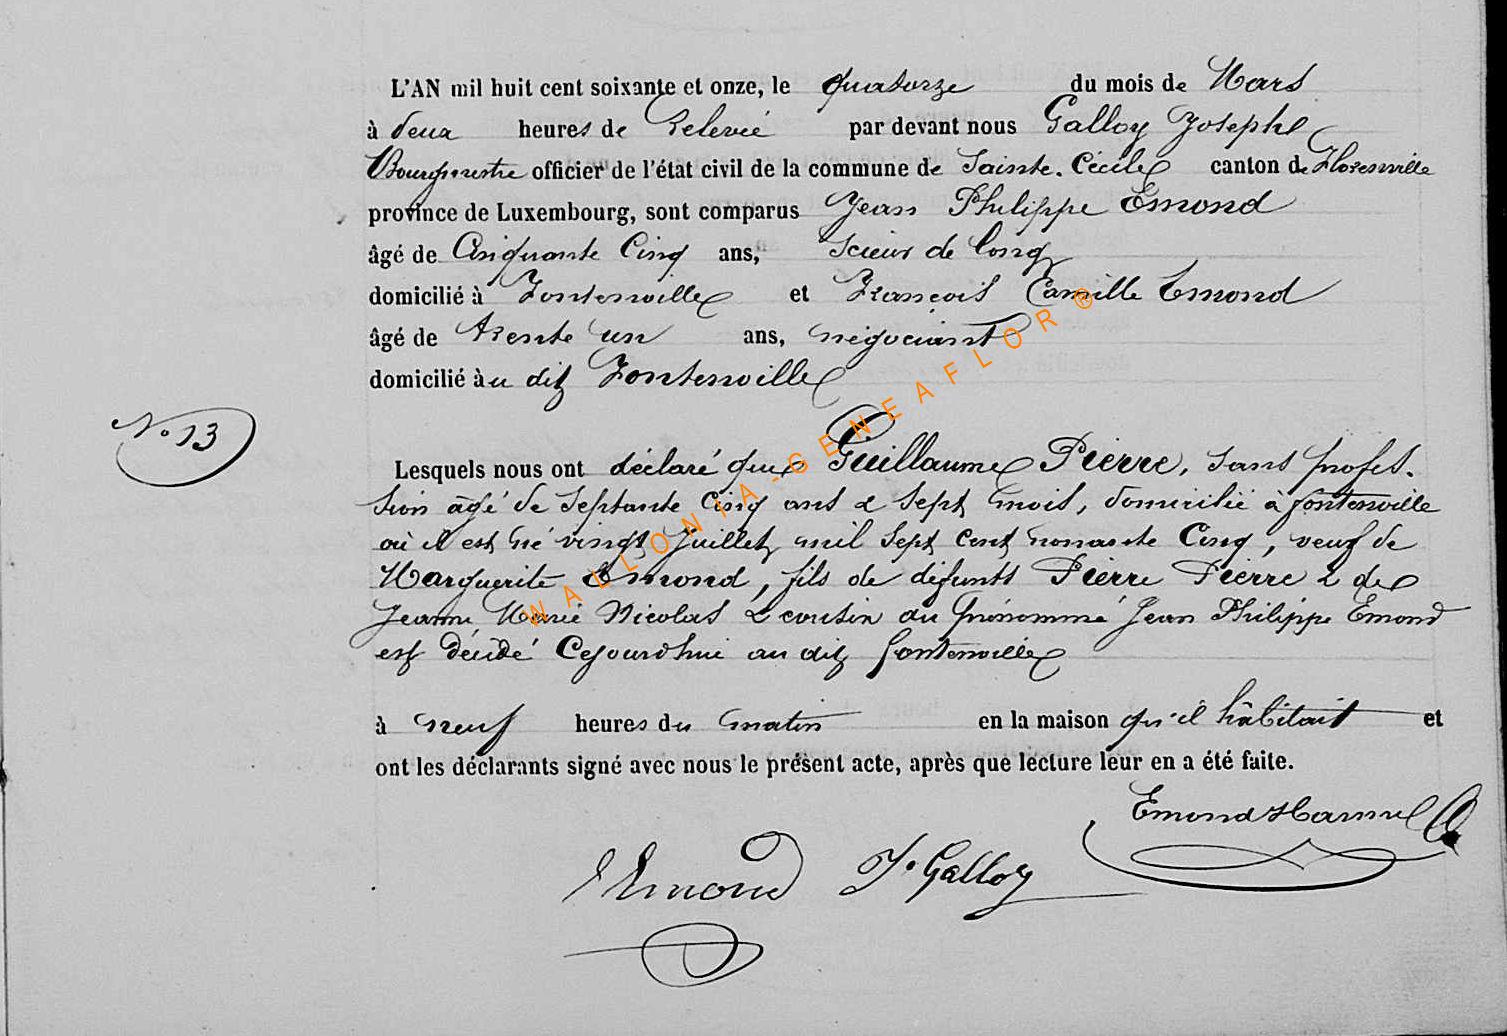 L'AN mil huit cent soixante et onze, le quatorze du mois de Mars
à deux heures de Relevée par devant nous Galloy Joseph
Bourgmestre officier de l'état civil de la commune de Sainte-Cécile canton de Florenville
province de Luxembourg, sont comparus Jean Philippe Emond
âgé de Cinquante Cinq ans, Scieur de long
domicilié à Fontenoille et François Camille Emond
âgé de trente un ans, négociant
domicilié au dit Fontenoille
No 13
Lesquels nous ont déclaré que Guillaume Pierre, sans profes-
sion âgé de Septante Cinq ans & Sept mois, domicilié à fontenoille
où il est né vingt Juillet mil Sept Cent nonante Cinq, veuf de
Marguerite Emond, fils de défunts Pierre Pierre & de
Jeanne Marie Nicolas & cousin au prénommé Jean Philippe Emond
est décédé Cejourdhui au dit fontenoille
à neuf heures du matin en la maison qu'il habitait et
ont les déclarants signé avec nous le présent acte, après que lecture leur en a été faite.
Emond Hamel
Emond J. Galloy
WALLONIA-GENEAFLOR ®